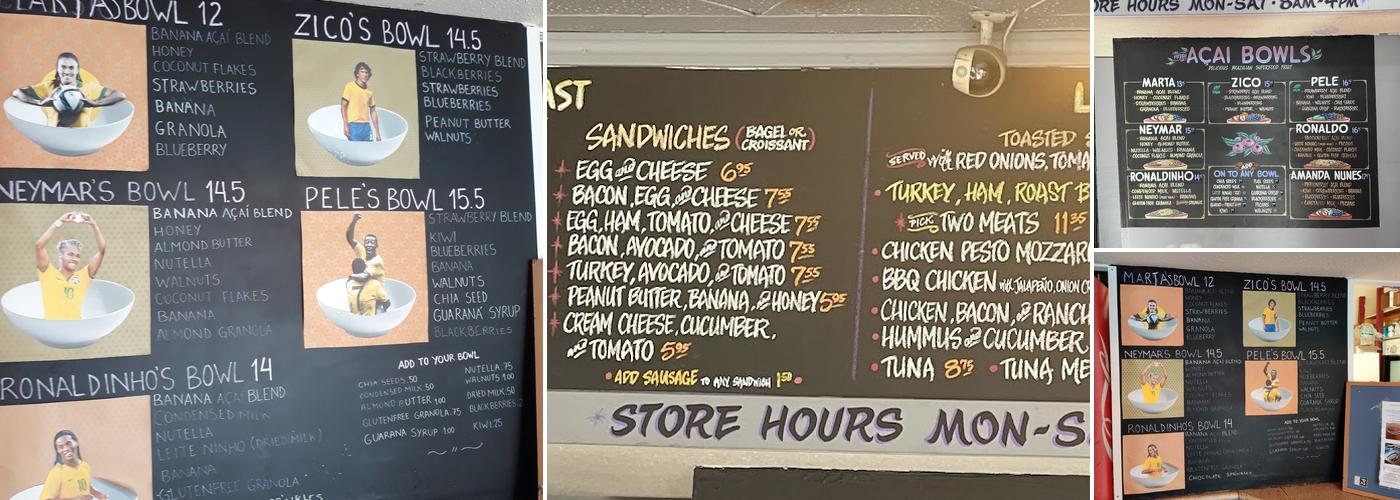 MARTA'S BOWL 12
BANANA AÇAÍ BLEND
HONEY
COCONUT FLAKES
STRAWBERRIES
BANANA
GRANOLA
BLUEBERRY
ZICO'S BOWL 14.5
STRAWBERRY BLEND
BLACKBERRIES
STRAWBERRIES
BLUEBERRIES
PEANUT BUTTER
WALNUTS
NEYMAR'S BOWL 14.5
BANANA AÇAÍ BLEND
HONEY
ALMOND BUTTER
NUTELLA
WALNUTS
COCONUT FLAKES
BANANA
ALMOND GRANOLA
PELE'S BOWL 15.5
STRAWBERRY BLEND
KIWI
BLUEBERRIES
BANANA
WALNUTS
CHIA SEED
GUARANÁ SYRUP
BLACKBERRIES
RONALDINHO'S BOWL 14
BANANA AÇAÍ BLEND
CONDENSED MILK
NUTELLA
LEITE NINHO (DRIED MILK)
BANANA
GLUTENFREE GRANOLA
ADD TO YOUR BOWL
CHIA SEEDS .50
CONDENSED MILK .50
ALMOND BUTTER 1.00
GLUTENFREE GRANOLA .75
GUARANA SYRUP 1.00
NUTELLA .75
WALNUTS 1.00
DRIED MILK .50
BLACKBERRIES .2
KIWI .25
AST
SANDWICHES (BAGEL OR CROISSANT)
EGG and CHEESE 6.95
BACON, EGG, and CHEESE 7.55
EGG, HAM, TOMATO, and CHEESE 7.55
BACON, AVOCADO, and TOMATO 7.55
TURKEY, AVOCADO, and TOMATO 7.55
PEANUT BUTTER, BANANA, and HONEY 5.95
CREAM CHEESE, CUCUMBER,
and TOMATO 5.95
• ADD SAUSAGE TO ANY SANDWICH 1.50 •
L
TOASTED S
SERVED with RED ONIONS, TOMA
• TURKEY, HAM, ROAST B
PICK TWO MEATS 11.35
• CHICKEN PESTO MOZZAR
• BBQ CHICKEN with JALAPEÑO, ONION CR
• CHICKEN, BACON, and RANCH
• HUMMUS and CUCUMBER
• TUNA 8.75 • TUNA ME
STORE HOURS MON-S
ORE HOURS MON-SAT • 8AM-4PM
AÇAI BOWLS
DELICIOUS BRAZILIAN SUPERFOOD FRUIT
MARTA
ZICO
PELE
NEYMAR
RONALDO
RONALDINHO
ADD
ON TO ANY BOWL
AMANDA NUNES
MARTA'S BOWL 12
ZICO'S BOWL 14.5
STRAWBERRY BLEND
BLACKBERRIES
STRAWBERRIES
BLUEBERRIES
PEANUT BUTTER
WALNUTS
NEYMAR'S BOWL 14.5
BANANA AÇAÍ BLEND
PELE'S BOWL 15.5
RONALDINHO'S BOWL 14
BANANA AÇAÍ BLEND
ADD TO YOUR BOWL
CHOCOLATE SPRINKLES